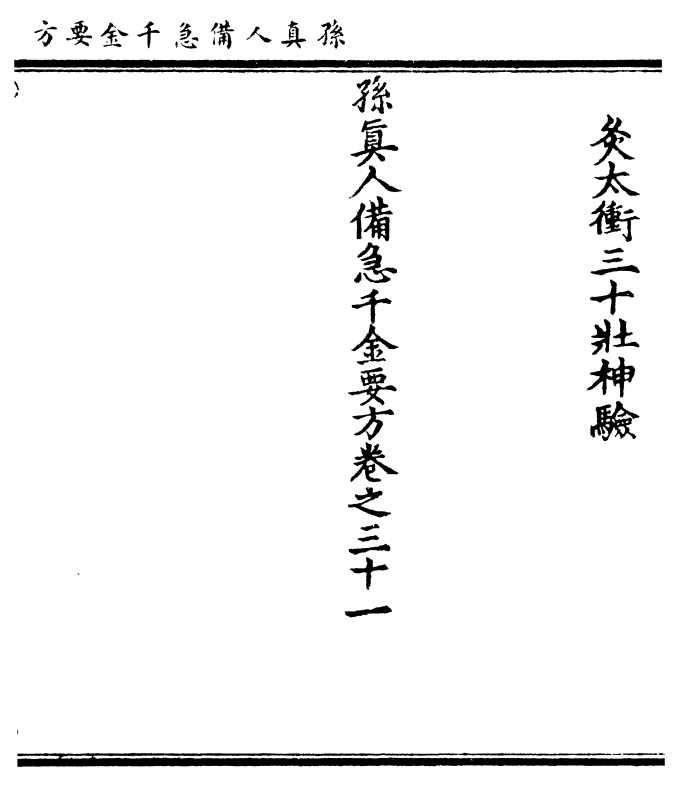 孫真人備急千金要方
灸太衝三十壯神驗
孫眞人備急千金要方卷之三十一